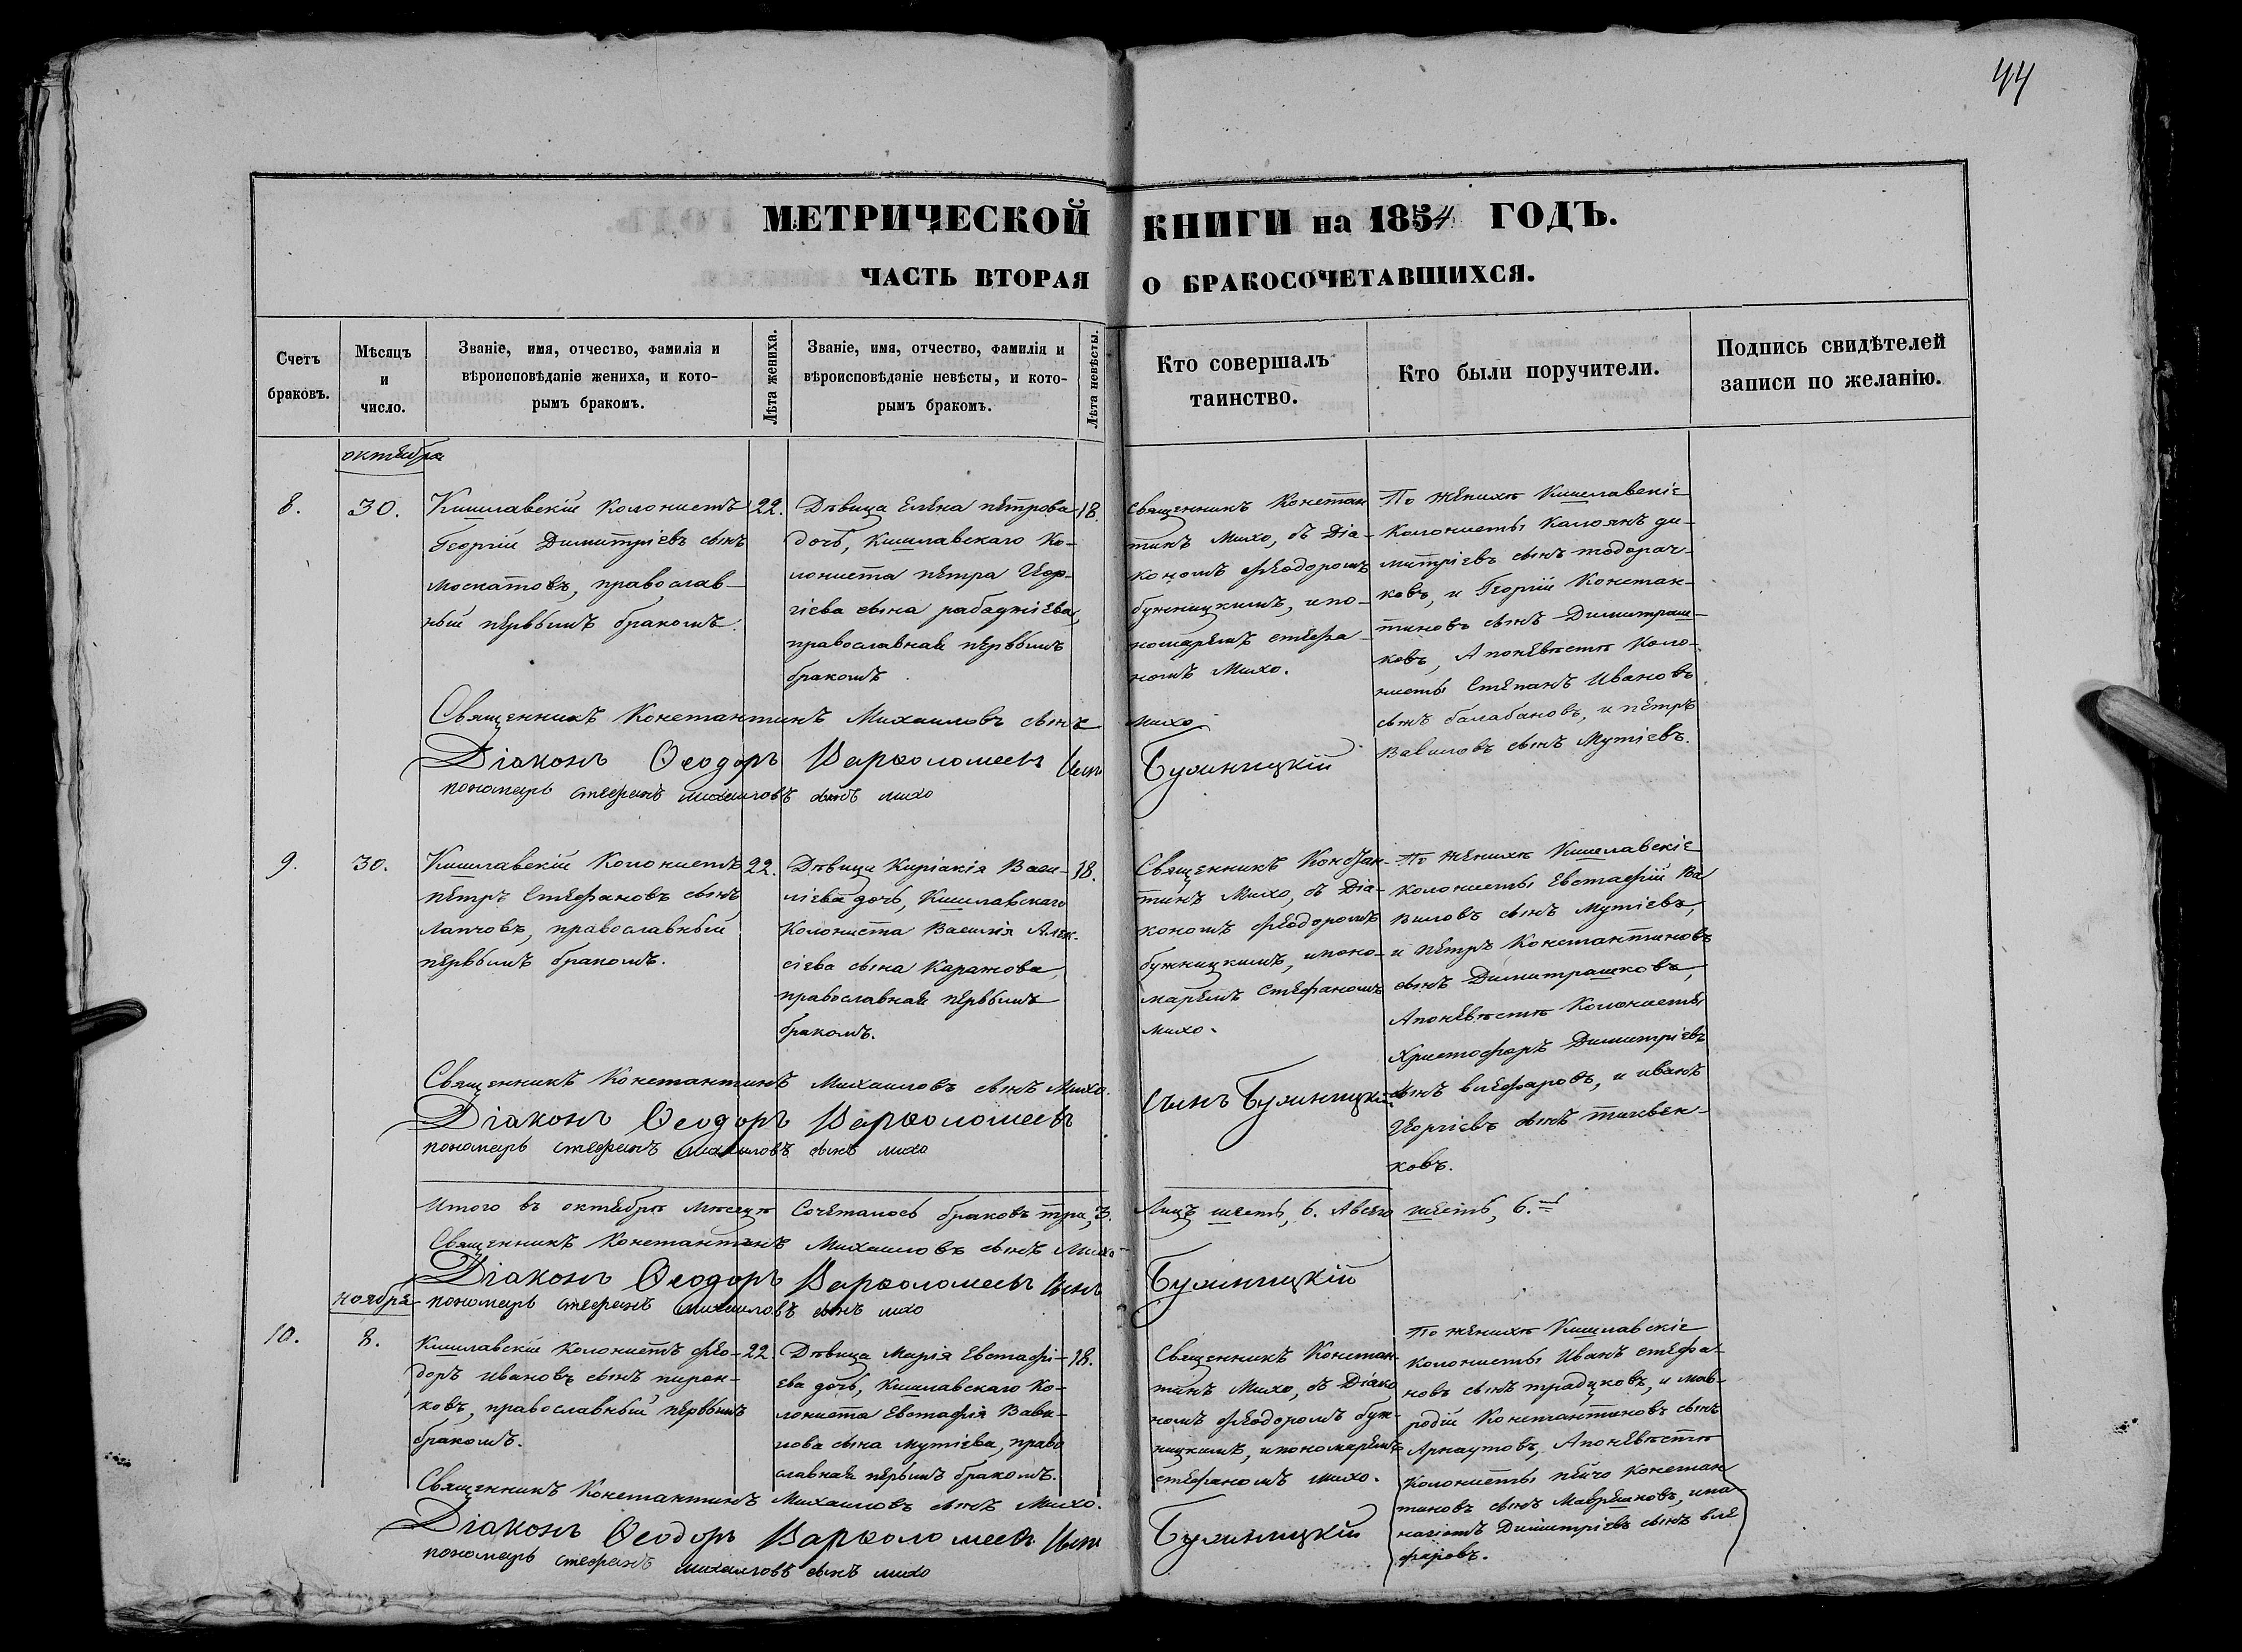 44
МЕТРИЧЕСКОЙ КНИГИ на 1854 ГОДЪ.
ЧАСТЬ ВТОРАЯ О БРАКОСОЧЕТАВШИХСЯ.
Счетъ
браковъ.
Мѣсяцъ
и
число.
Званіе, имя, отчество, фамилія и
вѣроисповѣданіе жениха, и кото-
рымъ бракомъ.
Лѣта жениха.
Званіе, имя, отчество, фамилія и
вѣроисповѣданіе невѣсты, и кото-
рымъ бракомъ.
Лѣта невѣсты.
Кто совершалъ
таинство.
Кто были поручители.
Подпись свидѣтелей
записи по желанію.
октября
8.
30.
Кишлавскій Колонистъ
Георгій Димитріевъ сынъ
Москатовъ, православ-
ный первымъ бракомъ.
22.
Дѣвица Елена петрова
дочь, Кишлавскаго Ко-
лониста петра Геор-
гіева сына рабаджіева,
православная первымъ
бракомъ
18.
Священникъ Констан
тинъ Михо, съ Діа-
кономъ Феодоромъ
бужницкимъ, и по-
номаремъ стефа-
номъ Михо.
По женихѣ Кишлавскіе
Колонисты Калоянъ ди-
митріевъ сынъ тодорач-
ковъ, и Георгій Констан-
тиновъ сынъ Димитраш-
ковъ, А поневѣстѣ Коло-
нисты Степанъ Ивановъ
сынъ балабановъ, и петръ
Вавиловъ сынъ Мутіевъ.
Священникъ Константинъ Михаиловъ сынъ Михо
Діаконъ Ѳеодоръ Варѳоломеевъ Сынъ Бужницкій
пономарь стефанъ михаиловъ сынъ михо
9.
30.
Кишлавскій Колонистъ
петръ Стефановъ сынъ
Лапчовъ, православный
первымъ бракомъ.
22.
Дѣвица Киріакія Васи-
ліева дочь, Кишлавскаго
Колониста Василія Алек-
сіева сына Каражова,
православная первымъ
бракомъ.
18.
Священникъ Констан-
тинъ Михо, съ Діа-
кономъ Феодоромъ
бужницкимъ, и поно-
маремъ Стефаномъ
михо.
По женихѣ Кишлавскіе
колонисты Евстафій Ва
виловъ сынъ Мутіевъ,
и петръ Константиновъ
сынъ Димитрашковъ,
А поневѣстѣ Колонисты
Христофоръ Димитріевъ
сынъ влефаровъ, и иванъ
Георгіевъ сынъ
ковъ.
Священникъ Константинъ Михаиловъ сынъ Михо.
Діаконъ Ѳеодоръ Варѳоломеевъ Сынъ Бужницкій
пономарь стефанъ михаиловъ сынъ михо
Итого въ октябрѣ мѣсяцѣ Сочеталось браковъ три, 3. Лицъ шесть, 6. А всего шесть, 6.
Священникъ Константинъ Михаиловъ сынъ Михо
Діаконъ Ѳеодоръ Варѳоломеевъ Сынъ Бужницкій
пономарь стефанъ михаиловъ сынъ михо
ноября
10.
8.
Кишлавскій колонистъ Фео-
доръ ивановъ сынъ пирон-
ковъ, православный первымъ
бракомъ.
22.
Дѣвица Марія Евстафі-
ева дочь, Кишлавскаго Ко-
лониста Евстафія Вави-
лова сына мутіева, право
славная первымъ бракомъ.
18.
Священникъ Констан-
тинъ Михо, съ Діако
номъ Феодоромъ буж-
ницкимъ, и пономаремъ
стефаномъ михо.
По женихѣ Кишлавскіе
колонисты Иванъ стефа-
новъ сынъ традцковъ, и мав-
родій Константиновъ сынъ
Арнаутовъ, А поневѣстѣ
колонисты пейчо констан
тиновъ сынъ Маврешковъ, и па-
наіотъ Димитріевъ сынъ вле
фаровъ.
Священникъ Константинъ Михаиловъ сынъ Михо.
Діаконъ Ѳеодоръ Варѳоломеевъ Сынъ Бужницкій
пономарь стефанъ михаиловъ сынъ михо